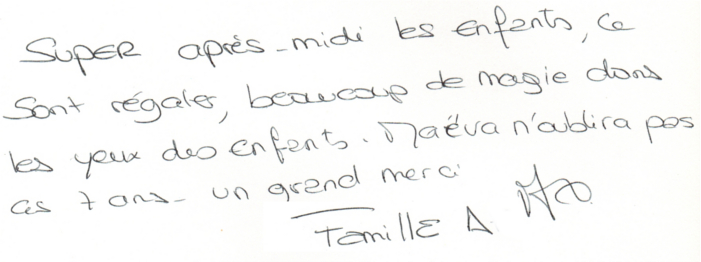 Super après-midi les enfants, ce
sont régaler, beaucoup de magie dans
les yeux des enfants. Maéva n'oublira pas
ces 7 ans - un grand merci
Famille A